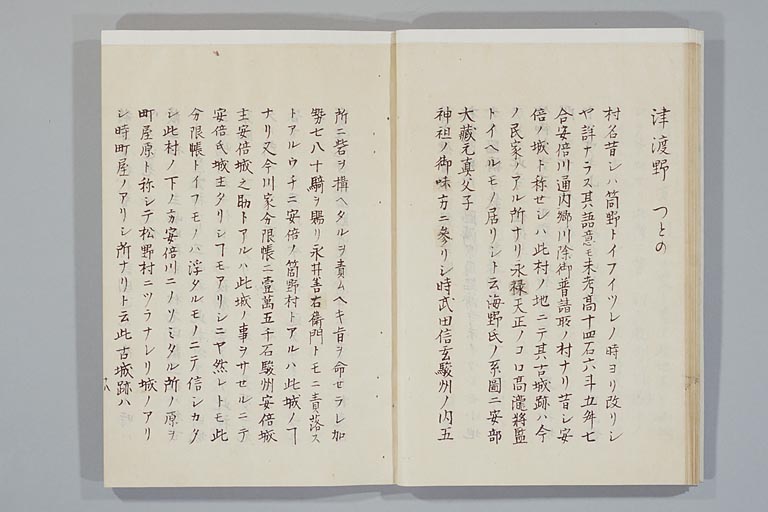 津渡野 つとの
村名昔シハ筒野トイフイツレノ時ヨリ改リシ
ヤ詳ナラス其語意モ未考高十四石六斗五舛七
合安倍川通内郷川除御普請取ノ村ナリ昔シ安
倍ノ城ト称セシハ此村ノ地ニテ其古城跡ハ今
ノ民家ノアル所ナリ永禄天正ノコロ高瀧将監
トイヘルモノ居リシト云海野氏ノ系圖ニ安部
大藏元真父子
神祖ノ御味方ニ参リシ時武田信玄駿州ノ内五
所ニ砦ヲ搆ヘタルヲ責ムヘキ旨ヲ命セラレ加
勢七八十騎ヲ賜リ永井善右衛門トモニ責落ス
トアルウチニ安倍ノ筒野村トアルハ此城ノヿ
ナリ又今川家分限帳ニ壹萬五千石駿州安倍城
主安倍城之助トアルハ此城ノ事ヲサセルニテ
安倍氏城主タリシヿモアリシニヤ然レトモ此
分限帳トイフモノハ浮タルモノニテ信シカタ
シ此村ノ下ノ方安倍川ニノソミタル所ノ原ヲ
町屋原ト称シテ松野村ニツラナレリ城ノアリ
シ時町屋ノアリシ所ナリト云此古城跡ハ